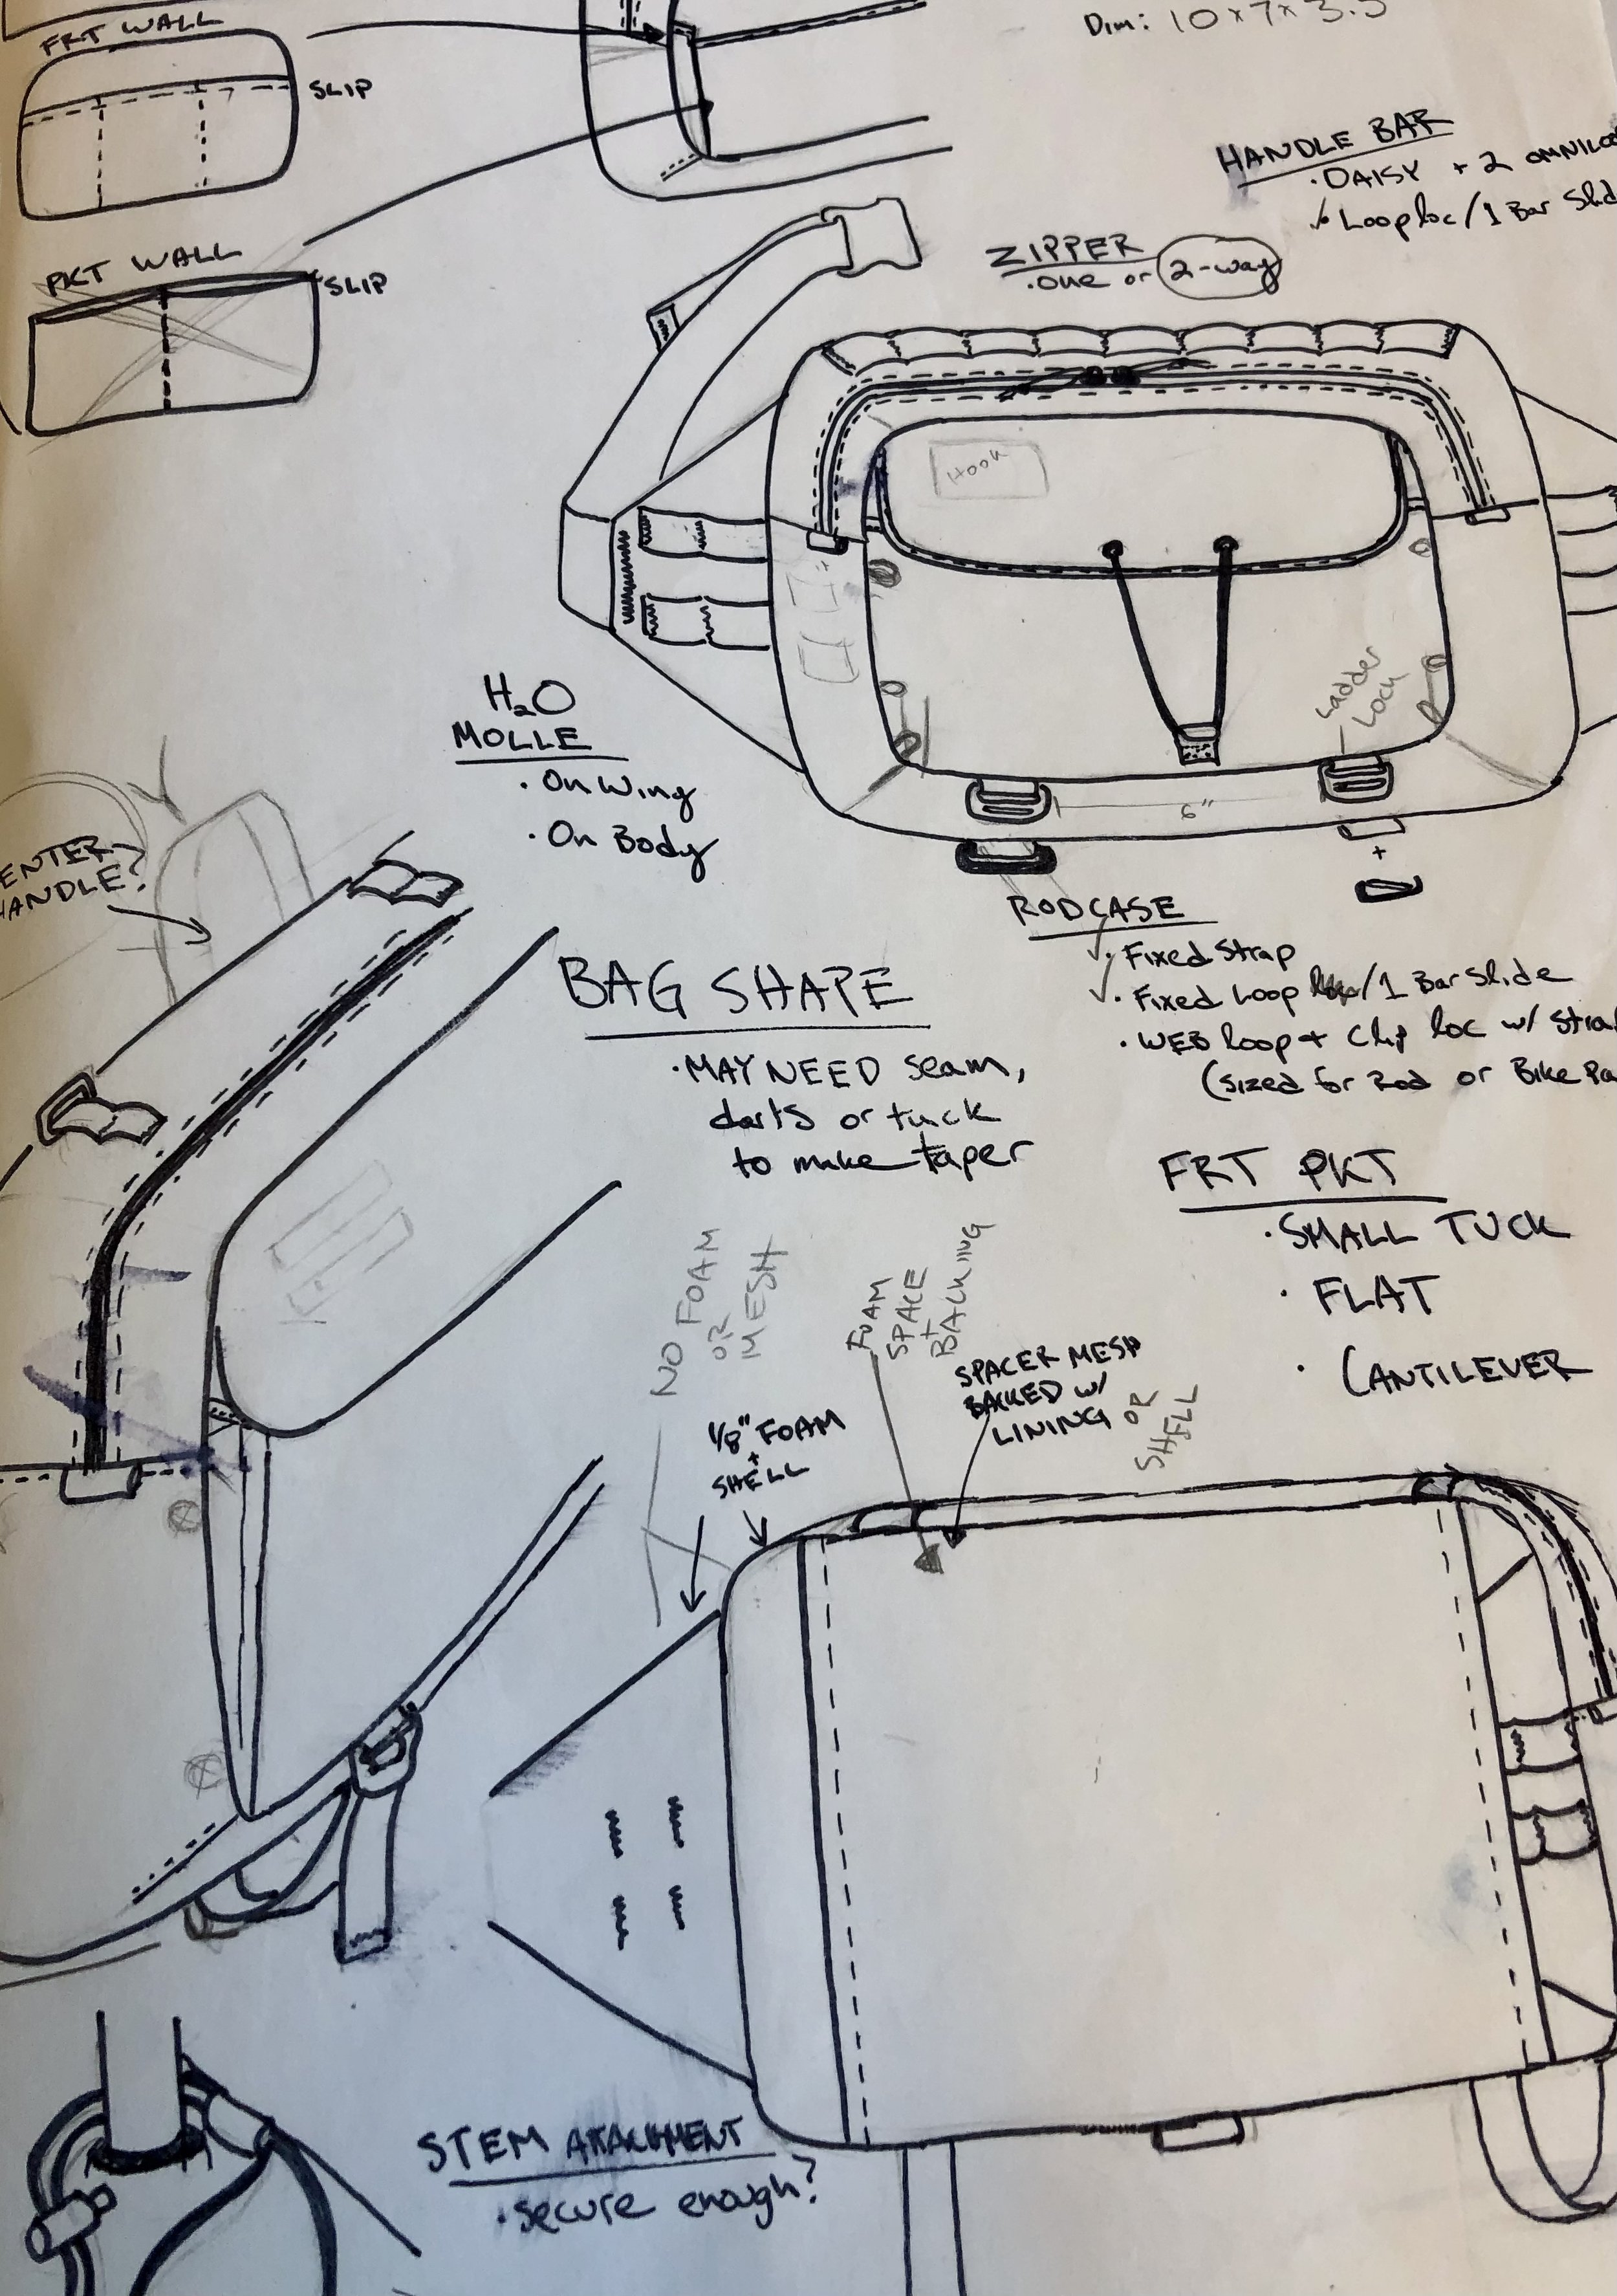 FRT WALL
SLIP
PKT WALL
SLIP
Dim: 10 x 7 x 3.5
HANDLE BAR
· DAISY + 2 OMNILO
· Looploc/1 Bar Slid
ZIPPER
· one or 2-way
Hook
Ladder
Lock
6"
+
H₂O
MOLLE
· On Wing
· On Body
ENTER
HANDLE?
RODCASE
· Fixed Strap
· Fixed Loop /1 Bar Slide
· WEB loop + Clip loc w/ Stra
(sized for Rod or Bike Pa
BAG SHAPE
· MAY NEED seam,
darts or tuck
to make taper
FRT PKT
· SMALL TUCK
· FLAT
· CANTILEVER
NO FOAM
OR
MESH
FOAM
SPACE
+
BACKING
SPACER MESH
BACKED w/
LINING OR
SHELL
1/8" FOAM
+
SHELL
STEM ATTACHMENT
· secure enough?